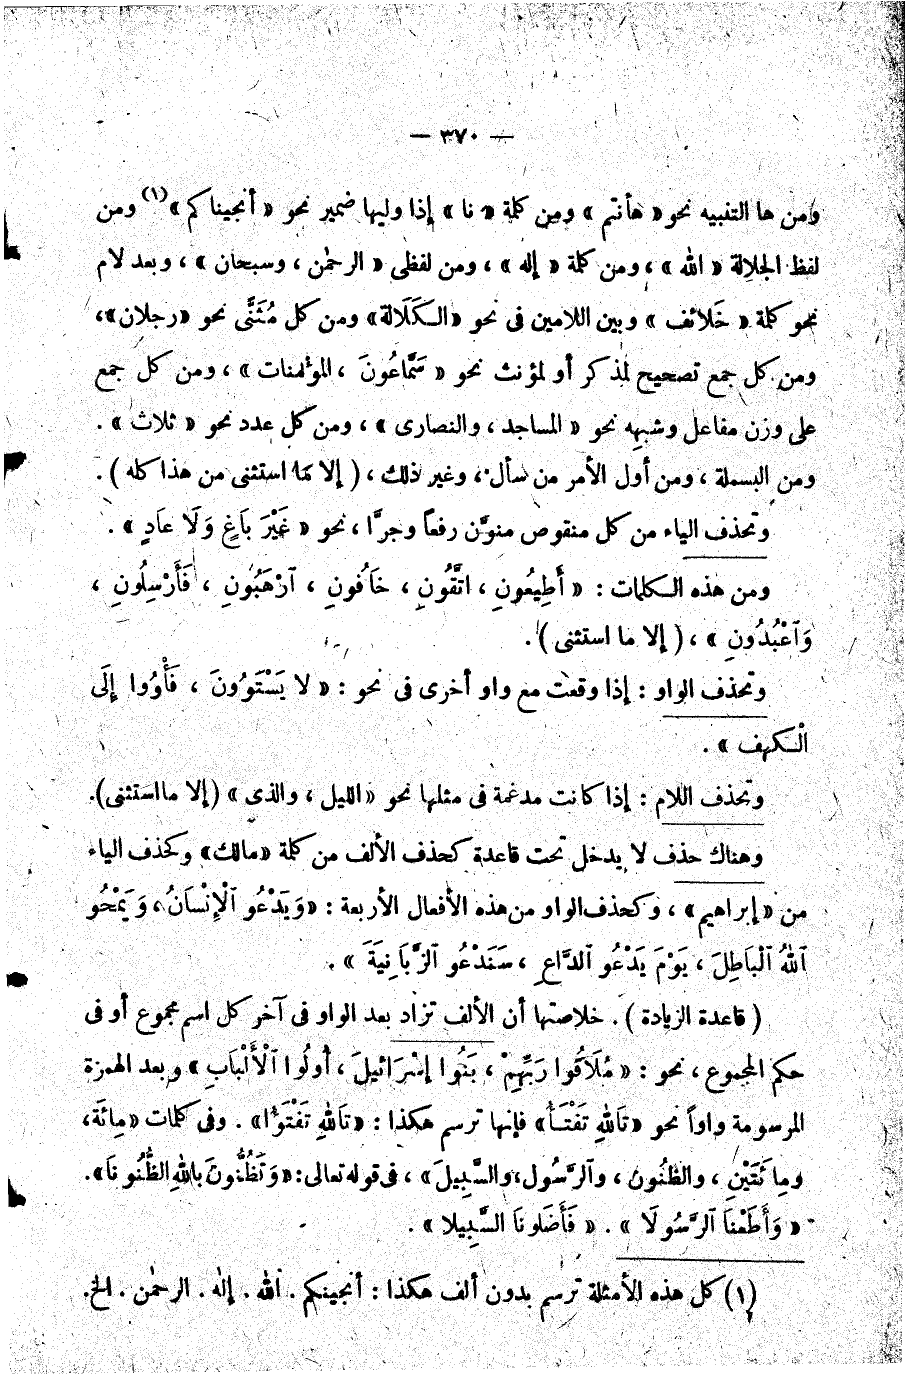 — ٣٧٠ —
ومن ها التنبيه نحو « هأنتم » ومن كلمة « نا » إذا وليها ضمير نحو « أنجيناكم »(١) ومن
لفظ الجلالة « الله » ، ومن كلمة « إله » ، ومن لفظى « الرحمٰن ، وسبحان » ، وبعد لام
نحو كلمة « خَلائف » وبين اللامين فى نحو «الـكَلَالة» ومن كل مُثَنًّى نحو «رجلان»،
ومن كل جمع تصحيح لمذكر أو لمؤنث نحو « سَمَّاعُونَ ، المؤمنات » ، ومن كل جمع
على وزن مفاعل وشبهه نحو « المساجد ، والنصارى » ، ومن كل عدد نحو « ثلاث » .
ومن البسملة ، ومن أول الأمر من سأل ، وغير ذلك ، ( إلا ما استثنى من هذا كله ) .
وتحذف الياء من كل منقوص منوَّن رفعاً وجرًّا ، نحو « غَيْرَ بَاغٍ وَلَا عادٍ » .
ومن هذه الـكلمات : « أَطِيعُونِ ، اتَّقُونِ ، خَافُونِ ، ٱرْهَبُونِ ، فَأَرْسِلُونِ ،
وَٱعْبُدُونِ » ، ( إلا ما استثنى ) .
وتحذف الواو : إذا وقعت مع واو أخرى فى نحو : « لا يَسْتَوُونَ ، فَأْوُوا إِلَى
الْـكهف » .
وتحذف اللام : إذا كانت مدغمة فى مثلها نحو « الليل ، والذى » (إلا ما استثنى).
وهناك حذف لا يدخل تحت قاعدة كحذف الألف من كلمة «مالك» وكحذف الياء
من «إبراهيم» ، وكحذف الواو من هذه الأفعال الأربعة : «وَيَدْعُو ٱلْإِنْسَانُ ، وَيَمْحُو
ٱللهُ ٱلْبَاطِلَ ، يَوْمَ يَدْعُو ٱلدَّاعِ ، سَنَدْعُو ٱلزَّبَانِيَةَ » .
( قاعدة الزيادة ) . خلاصتها أن الألف تزاد بعد الواو فى آخر كل اسم مجموع أو فى
حكم المجموع ، نحو : « مُلَاقُوا رَبِّهِمْ ، بَنُوا إسْرَائيلَ ، أُولُوا ٱلْأَلْبَابِ » وبعد الهمزة
المرسومة واواً نحو «تَاللهِ تَفْتَأُ» فإنها ترسم هكذا : «تَاللهِ تَفْتَؤُا» . وفى كلمات «مِائَة،
ومِائَتَيْنِ ، والظُّنُون ، وٱلرَّسُول ، والسَّبِيلَ» ، فى قوله تعالى: «وَتَظُنُّونَ بِاللهِ الظُّنُونَا».
« وَأَطَعْنَا ٱلرَّسُولَا » . « فَأَضَلونَا السَّبِيلا » .
(١) كل هذه الأمثلة ترسم بدون ألف هكذا : أنجينٰكم . ٱلله . إلٰه . الرحمٰن . الخ.